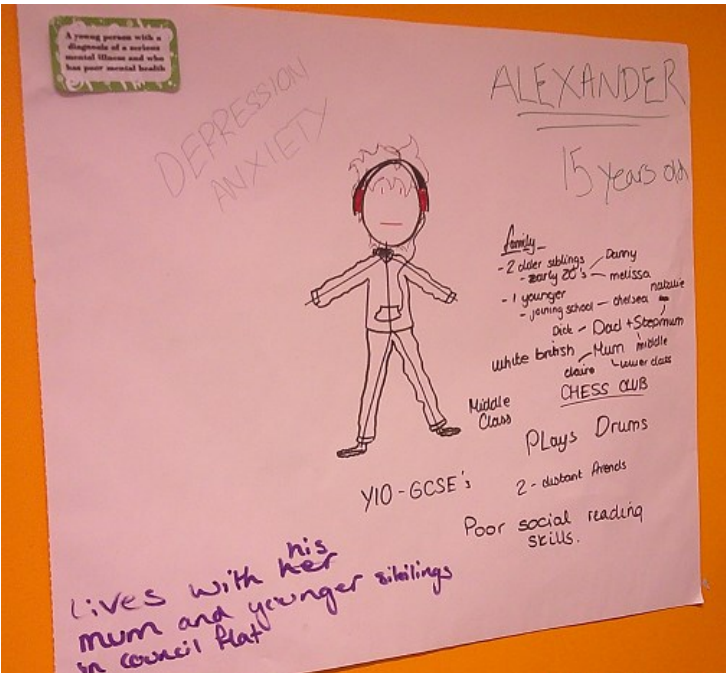 A young person with a
diagnosis of a serious
mental illness and who
has poor mental health
DEPRESSION
ANXIETY
ALEXANDER
15 years old
family
- 2 older siblings
- early 20's
Danny
melissa
- 1 younger
- joining school - chelsea
natalie
Dick - Dad + Stepmum
white british
Mum
claire
middle
lower class
Middle
Class
CHESS CLUB
Plays Drums
Y10 - GCSE's
2 - distant friends
Poor social reading
skills.
his
Lives with her
mum and younger sibilings
in council flat